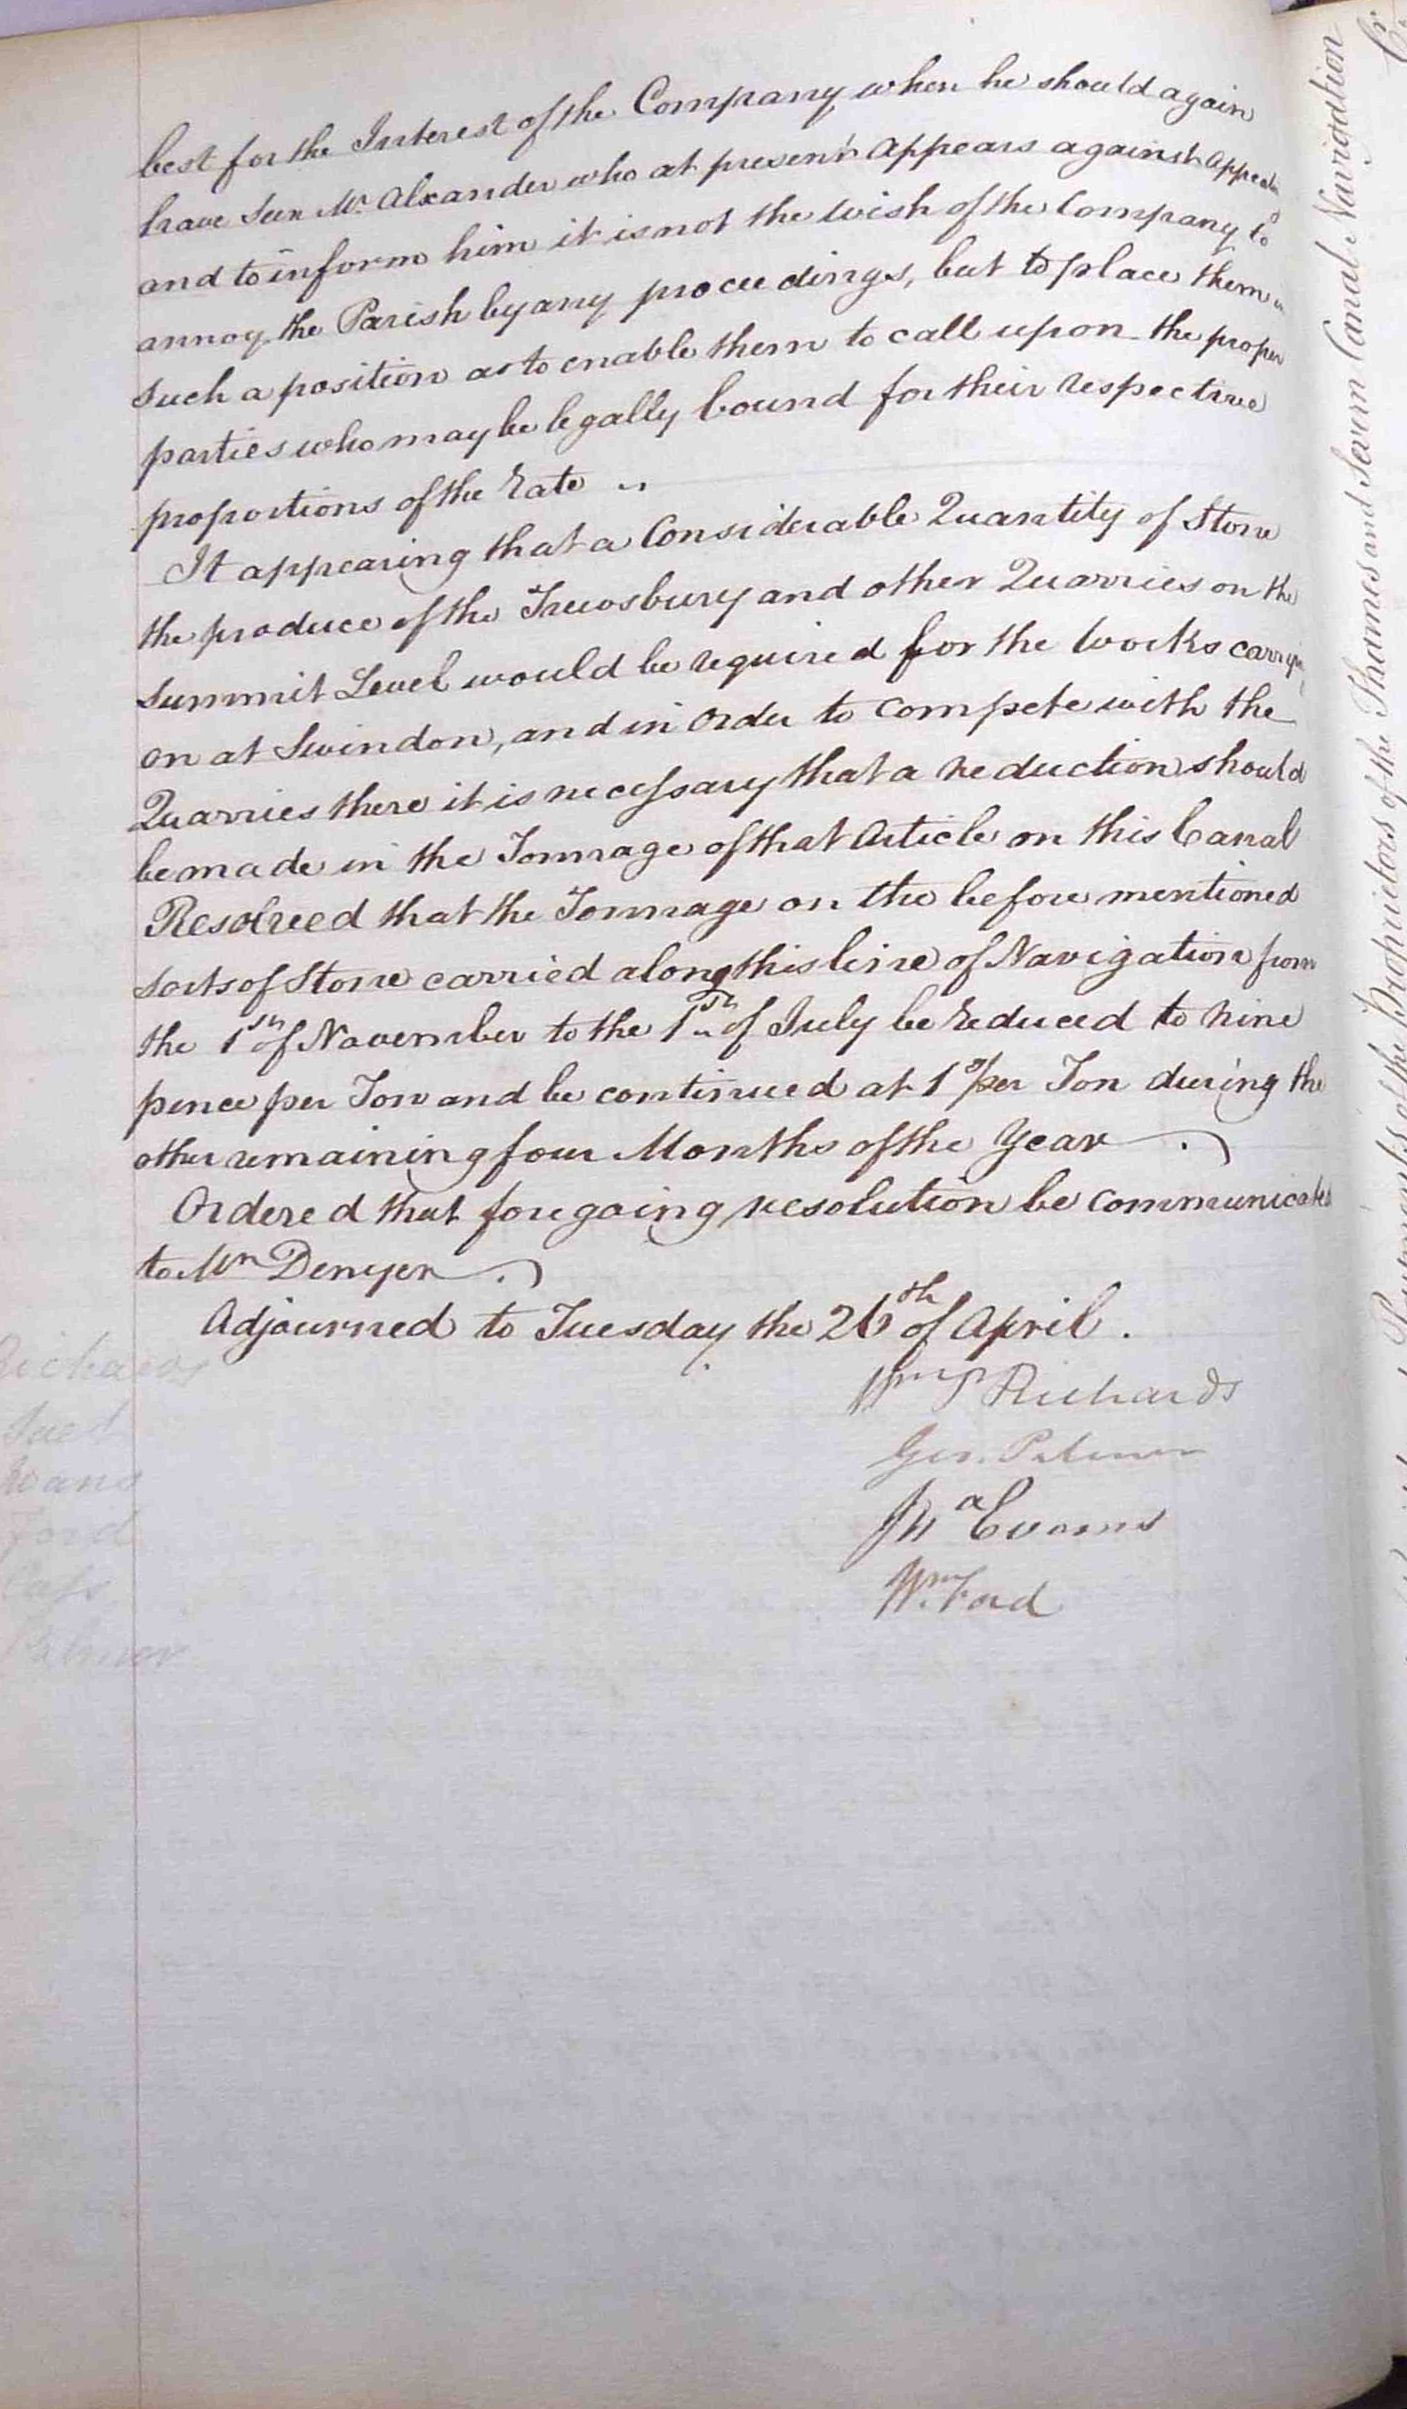 best for the Interest of the Company when he should again
have seen Mr. Alxander who at present appears against
and to inform him it is not the wish of the Company to
annoy the Parish by any proceedings, but to place them in
such a position as to enable them to call upon the proper
parties who may be legally bound for their respective
proportions of the Rate
It appearing that a Considerable Quantity of Stone
the produce of the Trewsbury and other Quarries on the
Summit Level would be required for the works carrying
on at Swindon, and in order to compete with the
Quarries there it is necessary that a reduction should
be made in the Tonnage of that Article on this Canal
Resolved that the Tonnage on the before mentioned
sorts of Stone carried along this line of Navigation from
the 1st of November to the 1st of July be reduced to nine
pence per Ton and be continued at 1s/ per Ton during the
other remaining four Months of the Year
Ordered that foregoing resolution be communicated
to Mr Denyer
Adjourned to Tuesday the 26th of April.
Richards
Geo. Palmer
Jna Evans
Wm. Ford
Richards
Evans
Ford
Cass
Palmer
Proprietors of the Thames and Severn Canal Navigation